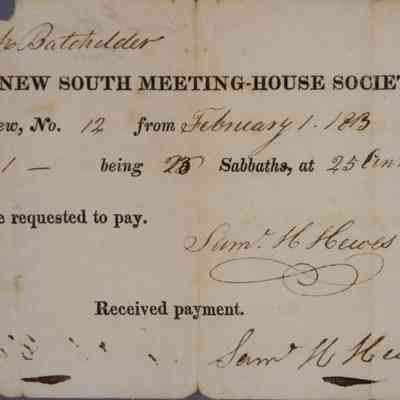 Batchelder
NEW SOUTH MEETING-HOUSE SOCIET
ew, No. 12 from February 1. 18
1 — being Sabbaths, at 25 Cen
e requested to pay.
Sam^r. H Hewes
Received payment.
Sam^l H He